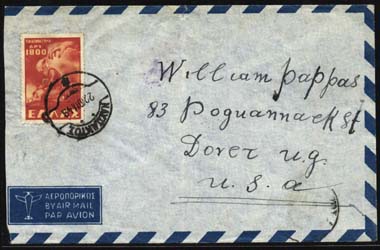 ΔΡΧ
1800
ΕΛΛΑΣ
William Pappas
83 Poquannack St
Dover n.g.
U.S.A
ΑΕΡΟΠΟΡΙΚΩΣ
BY AIR MAIL
PAR AVION